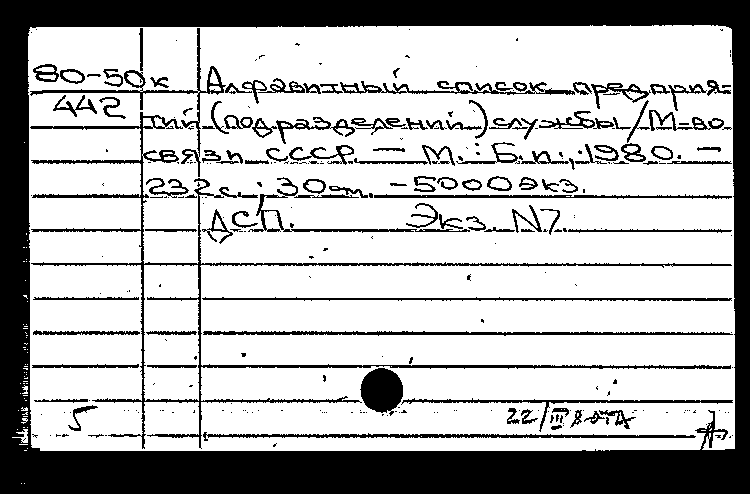 80-50к Алфавитный список предприя-
442 тий (подразделений) службы / М-во
связи СССР. — М.: Б.и., 1980. —
232 с.; 30 см. - 5000 экз.
ДСП. Экз. N7.
5 22/III